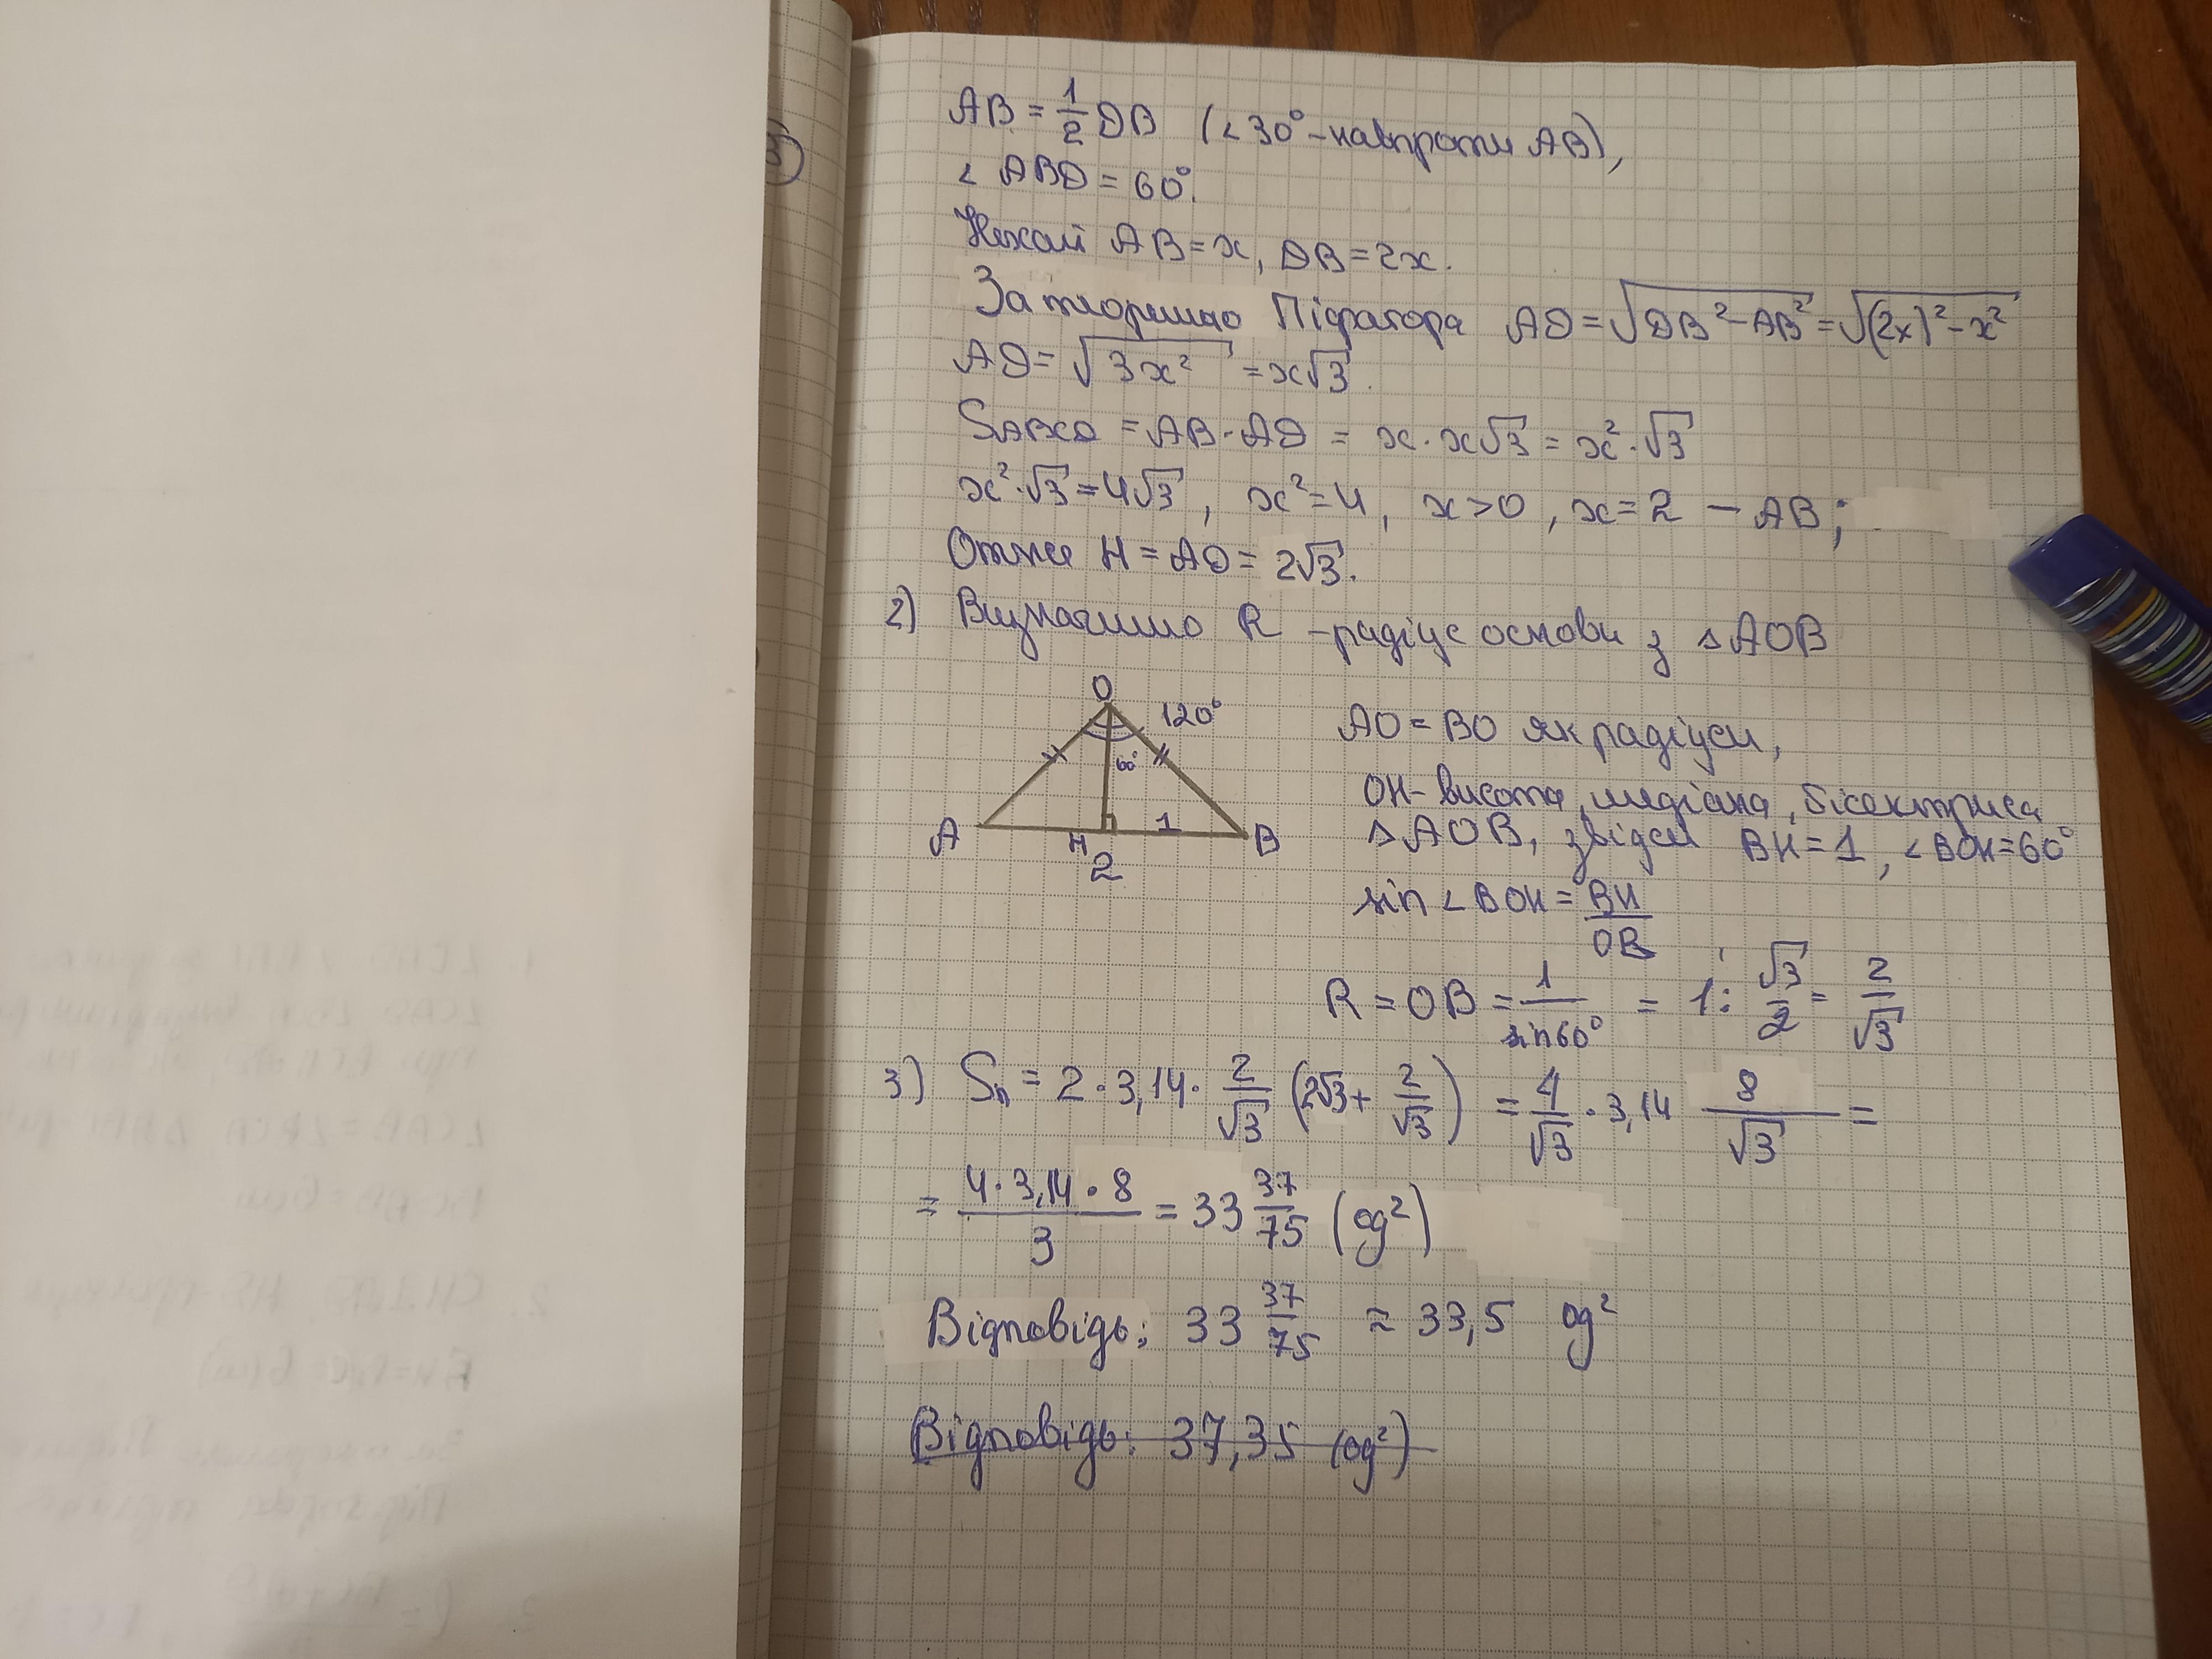 AB = 1/2 DB (∠30° - навпроти AB),
∠ ABD = 60°.
Нехай AB = x, DB = 2x.
За теоремою Піфагора AD = √(DB² - AB²) = √((2x)² - x²)
AD = √(3x²) = x√3.
S ABCD = AB · AD = x · x√3 = x² · √3
x² · √3 = 4√3, x² = 4, x > 0, x = 2 - AB;
Отже H = AD = 2√3.
2) Визначимо R - радіус основи з △AOB
O
120°
60°
A
H
1
B
2
AO = BO як радіуси,
OH - висота, медіана, бісектриса
△AOB, звідси BH = 1, ∠BOH = 60°
sin ∠BOH = BH/OB
R = OB = 1/sin60° = 1 : √3/2 = 2/√3
3) Sп = 2 · 3,14 · 2/√3 (2√3 + 2/√3) = 4/√3 · 3,14 8/√3 =
= (4 · 3,14 · 8)/3 = 33 37/75 (од²)
Відповідь: 33 37/75 ≈ 33,5 од²
Відповідь: 37,35 (од²)